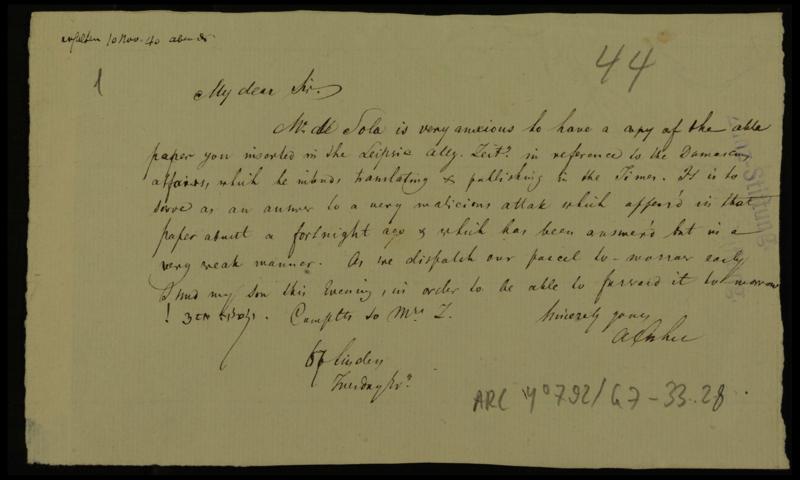 erhalten 10 Nov. 40 abends
44
1
My dear Sir.
Mr. de Sola is very anxious to have a copy of the able
paper you inserted in the Leipsic Allg. Zeitg. in reference to the Damascus
affairs, which he intends translating & publishing in the Times. It is to
serve as an answer to a very malicious attak which appear'd in that
paper about a fortnight ago & which has been answer'd but in a
very weak manner. As we dispatch our parcel to-morrow early
I send my son this Evening, in order to be able to forward it to morrow
! Complts to Mrs Z. Sincerely yours
A Asher
67 Linden
Tuesday Evg.
ARC 4° 792/G7-33.28.
Stiftung